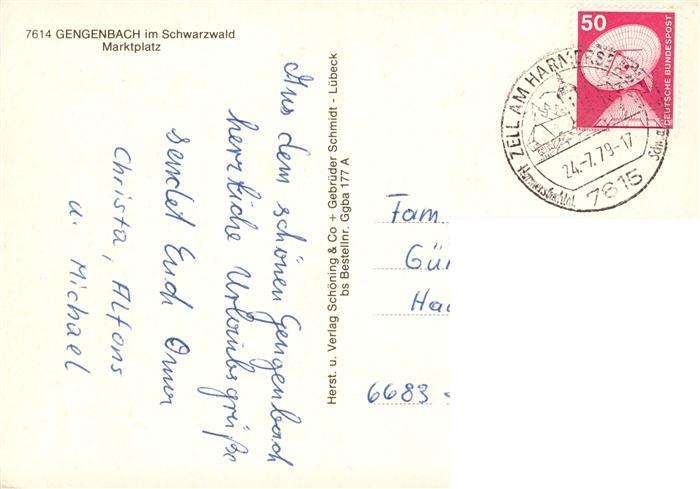 7614 GENGENBACH im Schwarzwald
Marktplatz
Aus dem schönen Gengenbach
herzliche Urlaubsgrüße
sendet Euch Oma
Christa, Alfons
u. Michael
Herst. u. Verlag Schöning & Co + Gebrüder Schmidt - Lübeck
bs Bestellnr. Ggba 177 A
50
DEUTSCHE BUNDESPOST
ZELL AM HARMERSB
24.-7.79-17
7615
Fam
Gü
Ha
6683